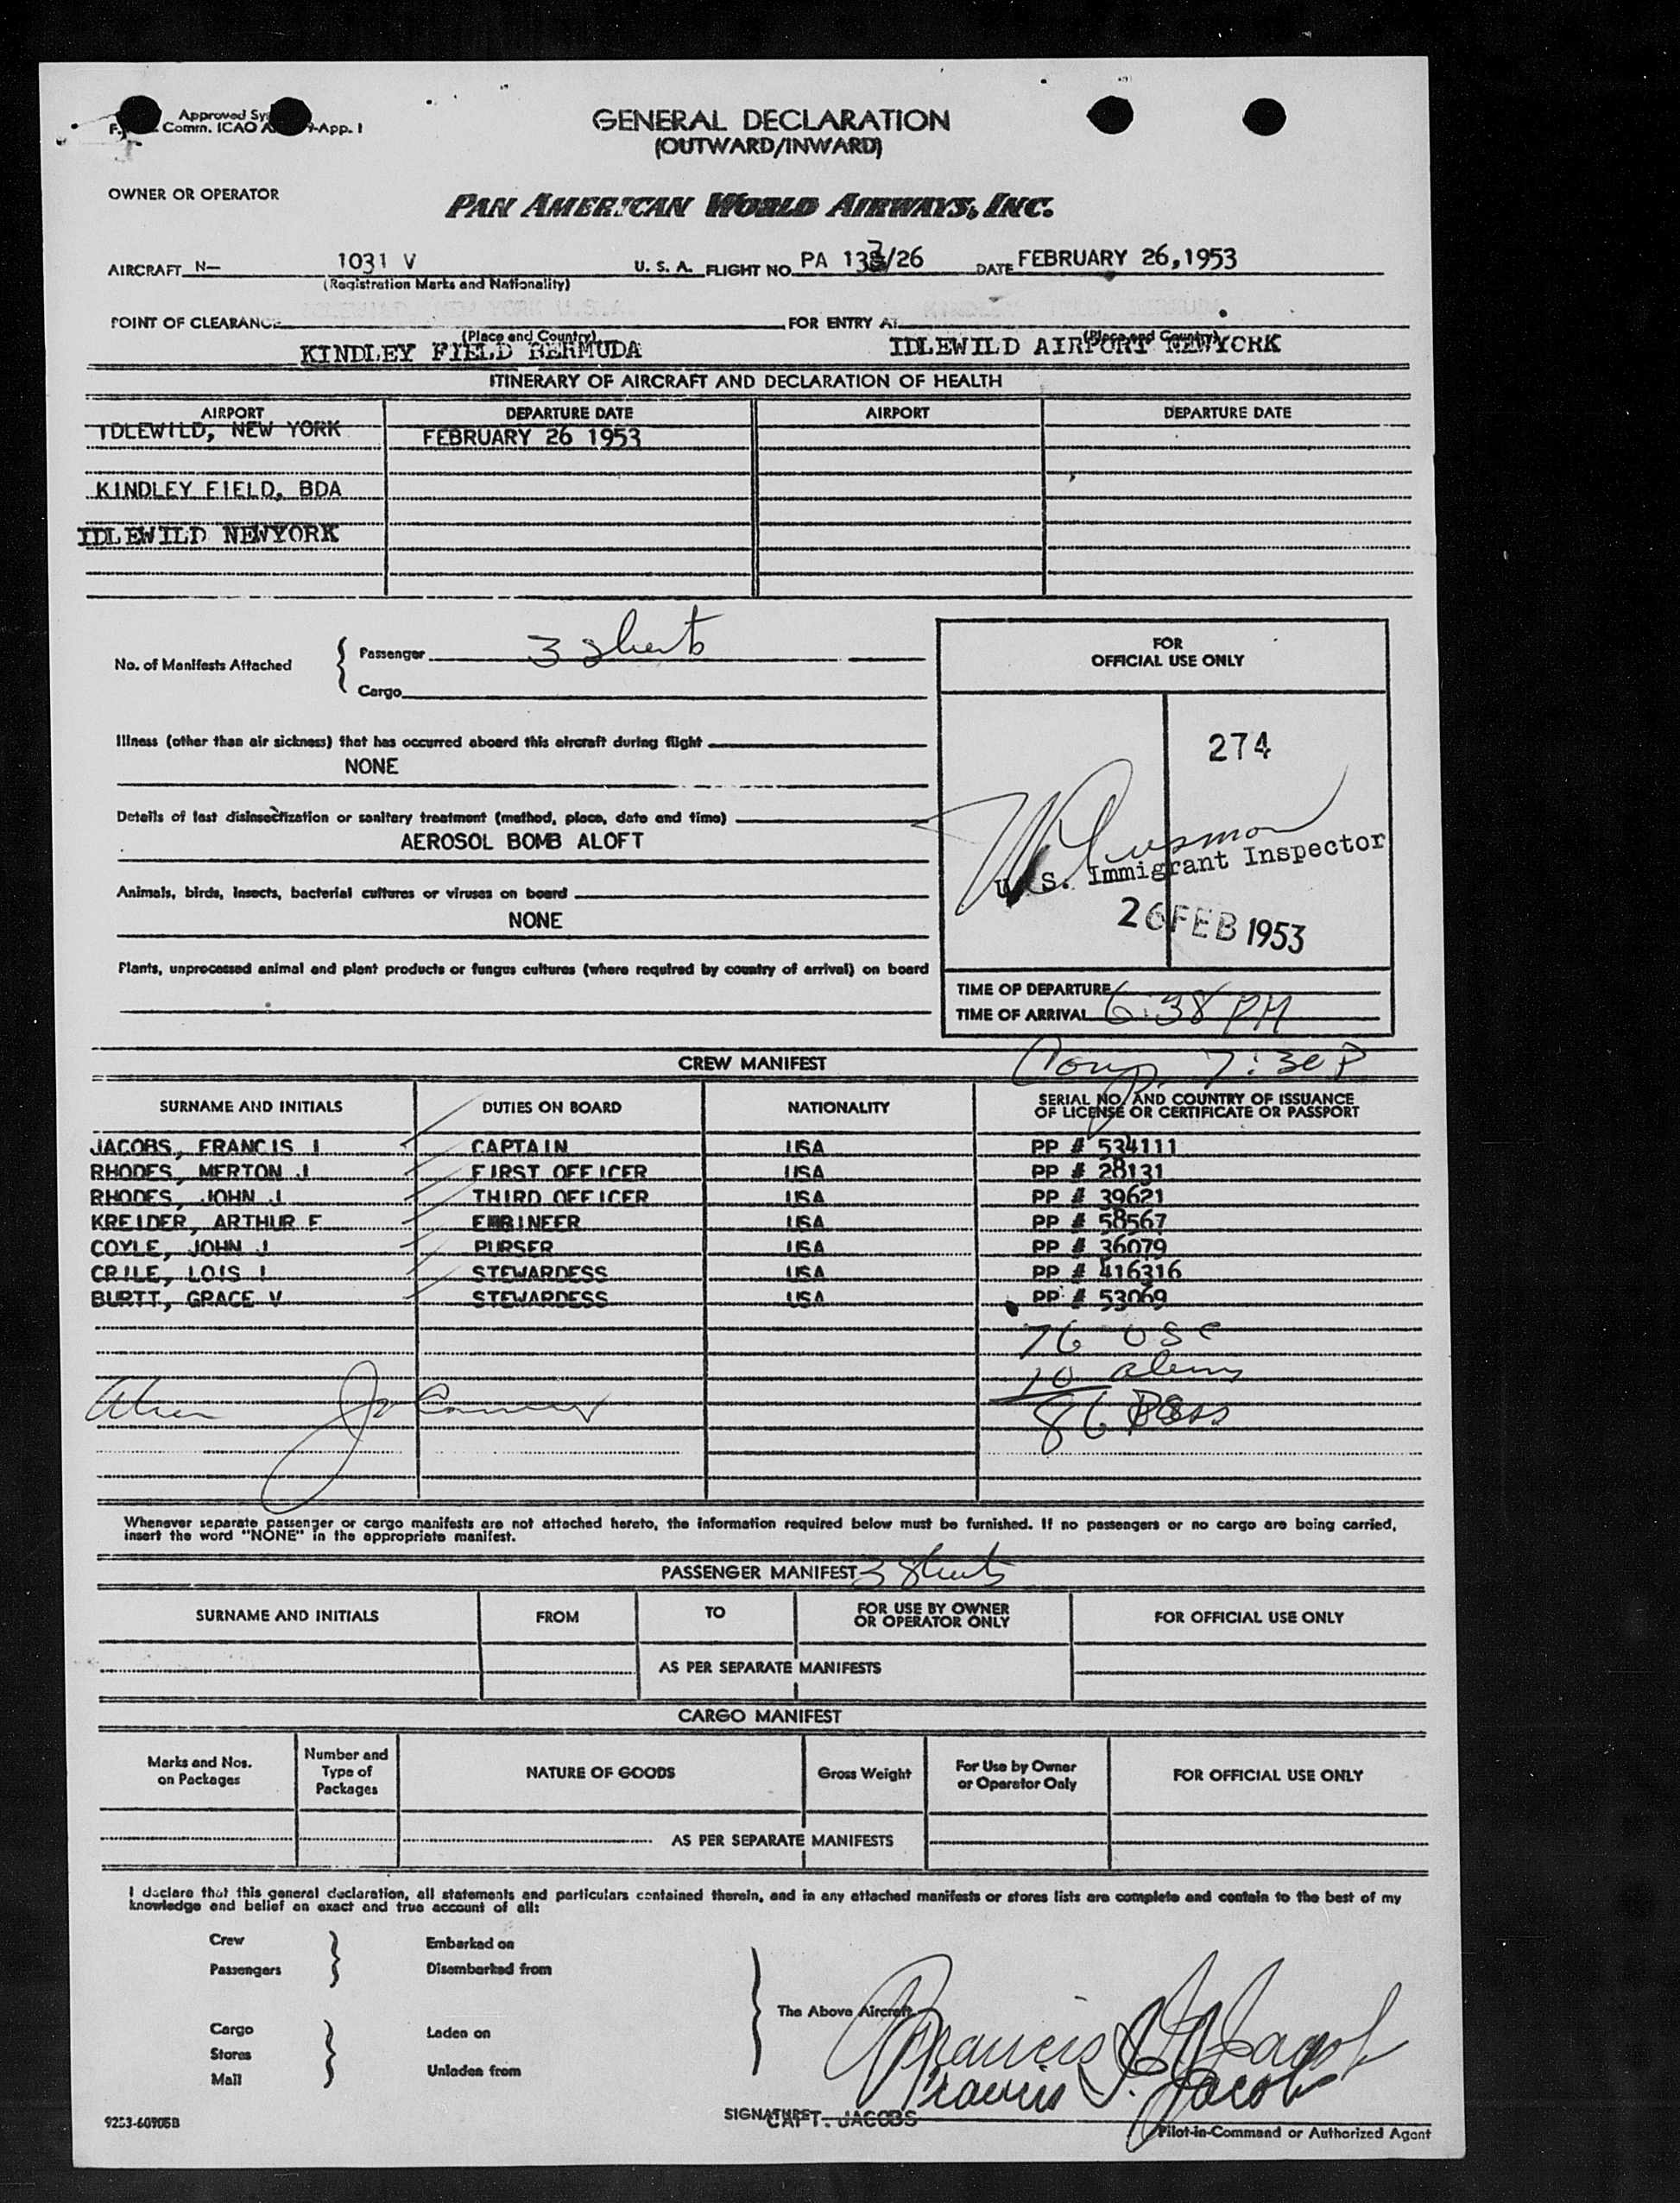 Approved
Comm. ICAO 9-App. 1
GENERAL DECLARATION
(OUTWARD/INWARD)
OWNER OR OPERATOR
PAN AMERICAN WORLD AIRWAYS, INC.
AIRCRAFT N- 1031 V U. S. A. FLIGHT NO. PA 133/26 DATE FEBRUARY 26,1953
(Registration Marks and Nationality)
POINT OF CLEARANCE FOR ENTRY AT
(Place and Country) (Place and Country)
KINDLEY FIELD BERMUDA IDLEWILD AIRPORT NEWYORK
ITINERARY OF AIRCRAFT AND DECLARATION OF HEALTH
AIRPORT DEPARTURE DATE AIRPORT DEPARTURE DATE
IDLEWILD, NEW YORK FEBRUARY 26 1953
KINDLEY FIELD, BDA
IDLEWILD NEWYORK
No. of Manifests Attached
Passenger 3 sheets
Cargo
Illness (other than air sickness) that has occurred aboard this aircraft during flight
NONE
Details of last disinsectization or sanitary treatment (method, place, date and time)
AEROSOL BOMB ALOFT
Animals, birds, insects, bacterial cultures or viruses on board
NONE
Plants, unprocessed animal and plant products or fungus cultures (where required by country of arrival) on board
FOR
OFFICIAL USE ONLY
274
U. S. Immigrant Inspector
26 FEB 1953
TIME OF DEPARTURE
TIME OF ARRIVAL 6:38 PM
CREW MANIFEST Comp. 7:30 P
SURNAME AND INITIALS DUTIES ON BOARD NATIONALITY SERIAL NO. AND COUNTRY OF ISSUANCE
OF LICENSE OR CERTIFICATE OR PASSPORT
JACOBS, FRANCIS I CAPTAIN USA PP # 534111
RHODES, MERTON J FIRST OFFICER USA PP # 28131
RHODES, JOHN J THIRD OFFICER USA PP # 39621
KREIDER, ARTHUR F ENGINEER USA PP # 58567
COYLE, JOHN J PURSER USA PP # 36079
CRILE, LOIS I STEWARDESS USA PP # 416316
BURTT, GRACE V STEWARDESS USA PP # 53069
76 USC
10 aliens
86 Pass
Whenever separate passenger or cargo manifests are not attached hereto, the information required below must be furnished. If no passengers or no cargo are being carried,
insert the word "NONE" in the appropriate manifest.
PASSENGER MANIFEST 3 Sheets
SURNAME AND INITIALS FROM TO FOR USE BY OWNER
OR OPERATOR ONLY FOR OFFICIAL USE ONLY
AS PER SEPARATE MANIFESTS
CARGO MANIFEST
Marks and Nos.
on Packages
Number and
Type of
Packages
NATURE OF GOODS
Gross Weight
For Use by Owner
or Operator Only
FOR OFFICIAL USE ONLY
AS PER SEPARATE MANIFESTS
I declare that this general declaration, all statements and particulars contained therein, and in any attached manifests or stores lists are complete and contain to the best of my
knowledge and belief an exact and true account of all:
Crew Embarked on
Passengers Disembarked from
The Above Aircraft
Cargo Laden on
Stores
Mail Unladen from
Francis I. Jacobs
Francis I. Jacobs
SIGNATURE CAPT. JACOBS
9253-60905B
Pilot-in-Command or Authorized Agent